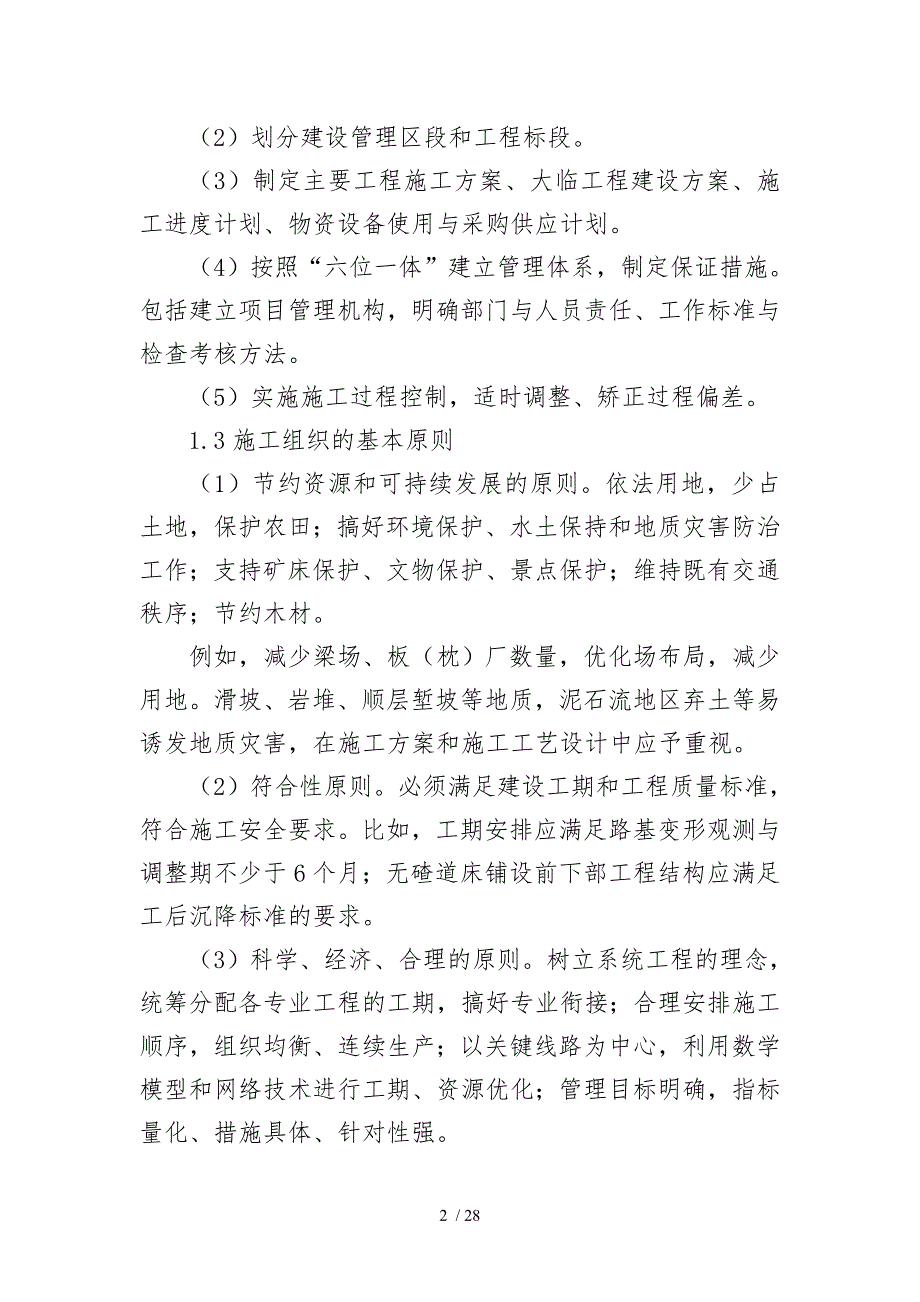 （2）划分建设管理区段和工程标段。
（3）制定主要工程施工方案、大临工程建设方案、施
工进度计划、物资设备使用与采购供应计划。
（4）按照“六位一体”建立管理体系，制定保证措施。
包括建立项目管理机构，明确部门与人员责任、工作标准与
检查考核方法。
（5）实施施工过程控制，适时调整、矫正过程偏差。
1.3 施工组织的基本原则
（1）节约资源和可持续发展的原则。依法用地，少占
土地，保护农田；搞好环境保护、水土保持和地质灾害防治
工作；支持矿床保护、文物保护、景点保护；维持既有交通
秩序；节约木材。
例如，减少梁场、板（枕）厂数量，优化场布局，减少
用地。滑坡、岩堆、顺层堑坡等地质，泥石流地区弃土等易
诱发地质灾害，在施工方案和施工工艺设计中应予重视。
（2）符合性原则。必须满足建设工期和工程质量标准，
符合施工安全要求。比如，工期安排应满足路基变形观测与
调整期不少于 6 个月；无碴道床铺设前下部工程结构应满足
工后沉降标准的要求。
（3）科学、经济、合理的原则。树立系统工程的理念，
统筹分配各专业工程的工期，搞好专业衔接；合理安排施工
顺序，组织均衡、连续生产；以关键线路为中心，利用数学
模型和网络技术进行工期、资源优化；管理目标明确，指标
量化、措施具体、针对性强。
2 / 28